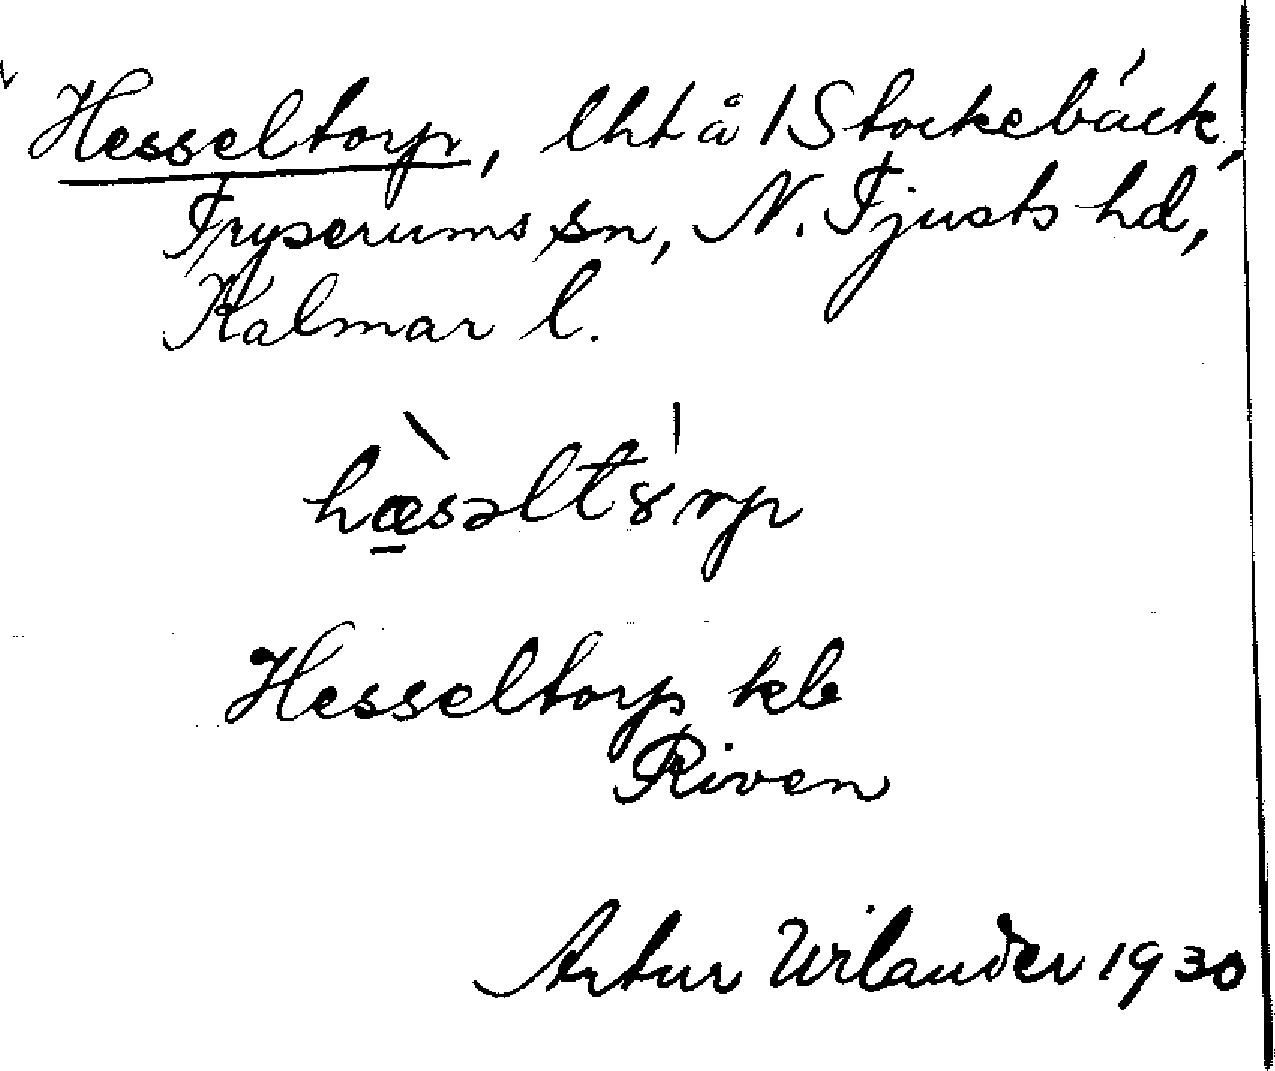 Hesseltorp, lht å 1 Stockebäck,
Fryserums sn, N. Tjusts hd,
Kalmar l.
hæ̀səlt8́rp
Hesseltorp kb
Riven
Artur Wilander 1930